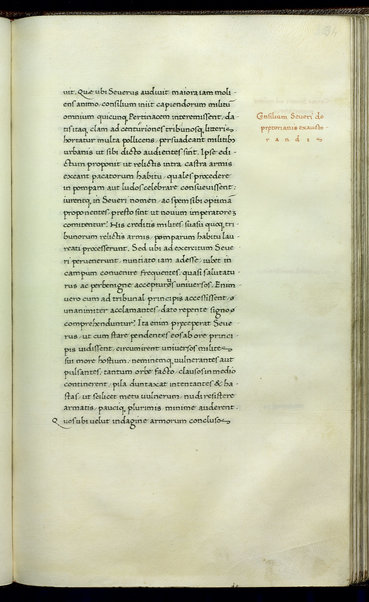 uit. Quę ubi Seuerus audiuit maiora iam moli
ens animo, consilium iniit capiendorum militū
omnium quicunq; Pertinacem interemissent, da
tis itaq; clam ad centuriones tribunosq; litteris
hortatur multa pollicens, persuadeant militibꝰ
urbanis ut sibi dicto audientes sint. Ipse edi
ctum proponit ut relictis intra castra armis
exeant pacatorum habitu, quales procedere
in pompam aut ludos celebrare consueuissent,
iurentq; in Seueri nomen, ac spem sibi optima
proponentes, presto sint ut nouum imperatorē
comitentur. His creditis milites, suasu quoq; tri
bunorum relictis armis, pomparum habitu lau
reati processerunt. Sed ubi ad exercitum Seue
ri peruenerunt, nuntiato iam adesse, iubet in
campum conuenire frequentes, quasi salutatu
rus ac perbenigne accepturus uniuersos. Enim
uero cum ad tribunal principis accessissent, &
unanimiter acclamantes, dato repente signo
comprehenduntur. Ita enim pręceperat Seue
rus, ut cum stare pendentes eos ab ore princi
pis uidissent, circumirent uniuersos milites
sui more hostium, neminemq; uulnerantes aut
pulsantes, tantum orbe facto, clausos in medio
continerent, pila duntaxat intentantes & ha
stas, ut scilicet metu uulnerum, nudi resistere
armatis, pauciq; plurimis minime auderent.
Quos ubi uelut indagine armorum conclusos
Consilium Seueri de
pretorianis exaucto
randis